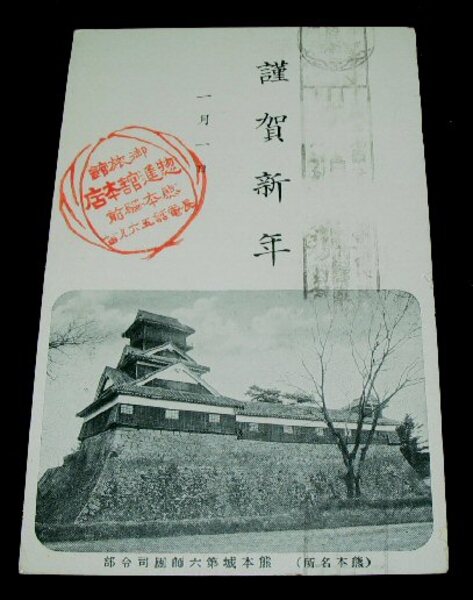 謹賀新年
一月一日
御旅館
惣運館本店
熊本驛前
長電話五六八番
(熊本名所) 熊本城第六師團司令部